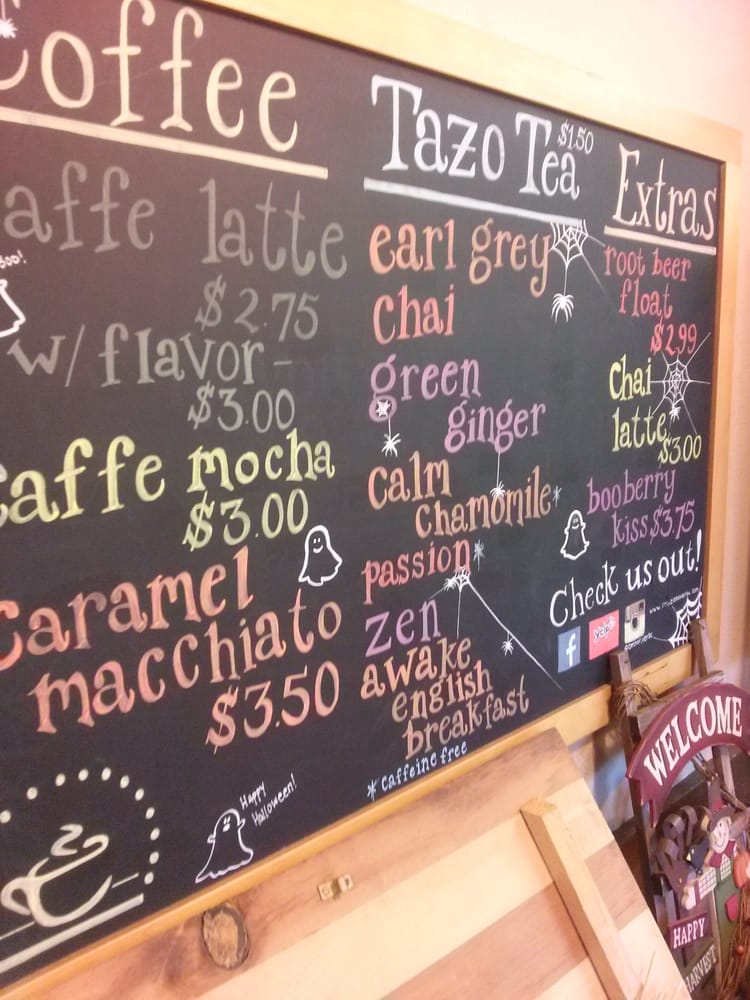 Coffee
caffe latte
$2.75
w/flavor-
$3.00
caffe mocha
$3.00
caramel
macchiato
$3.50
Happy
Halloween!
Boo!
Tazo Tea $1.50
earl grey
chai
green
ginger
calm
chamomile*
passion*
zen
awake
english
breakfast
* caffeine free
Extras
root beer
float
$2.99
chai
latte
$3.00
booberry
kiss $3.75
Check us out!
f
yelp
WELCOME
HAPPY
HARVEST